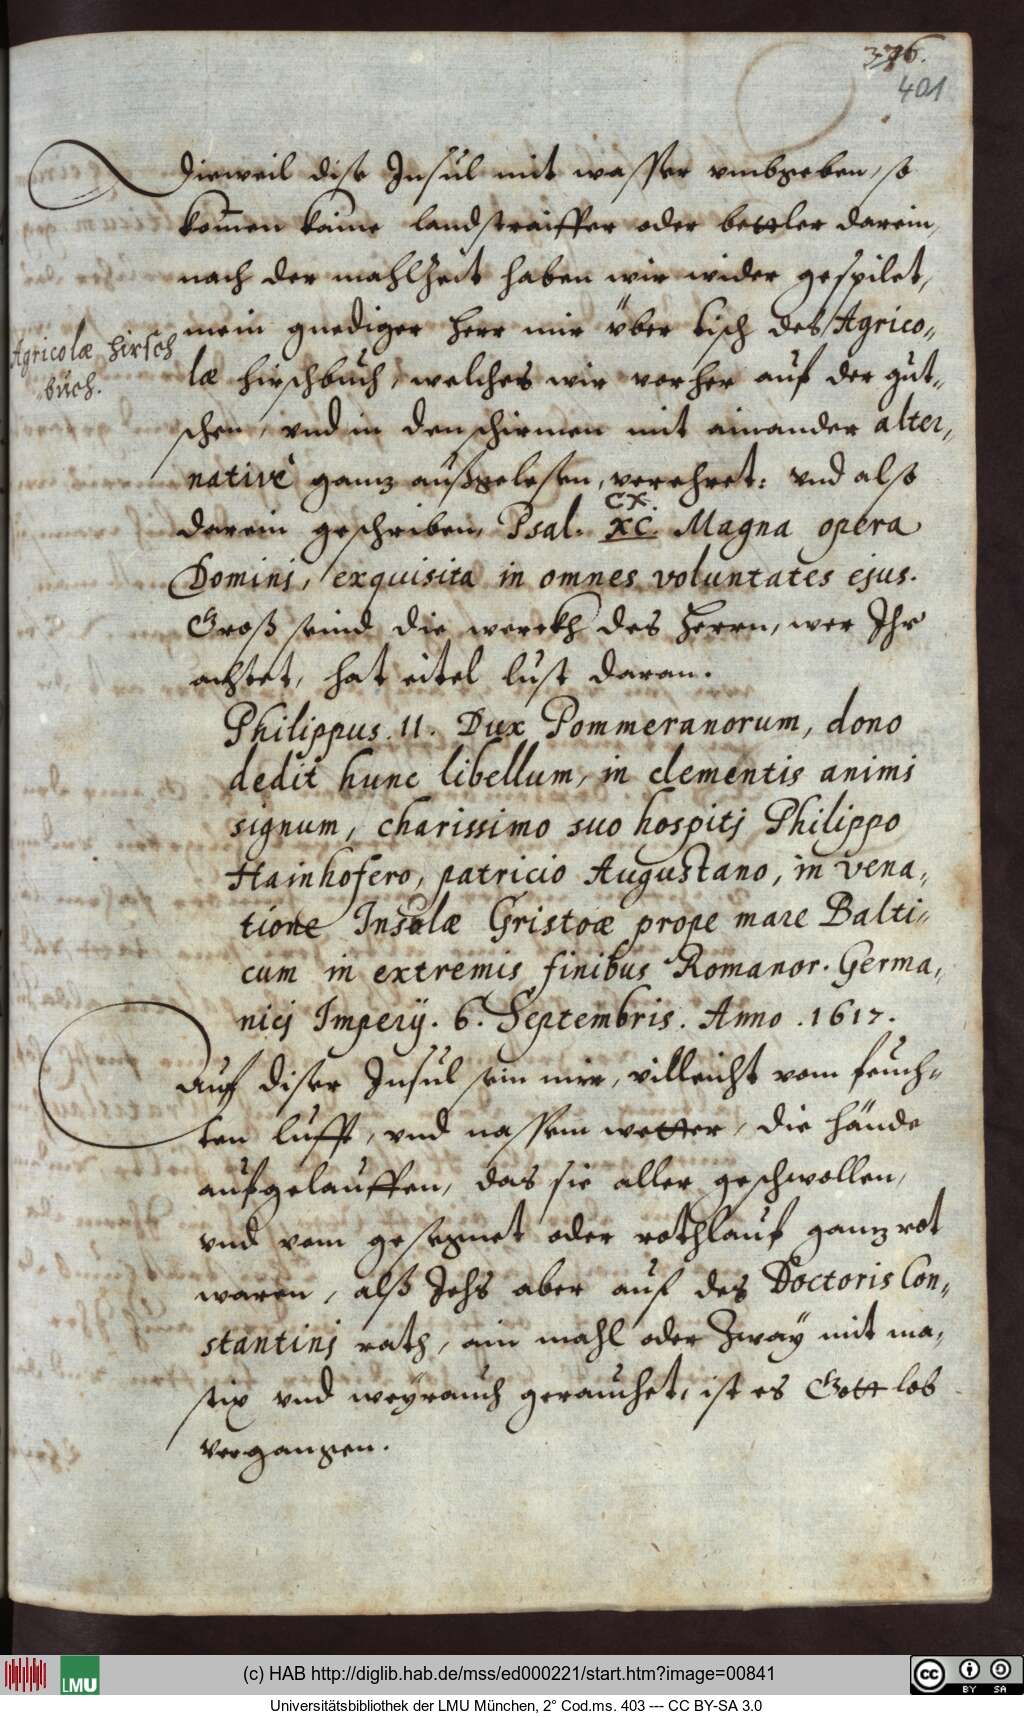 376.
401
Dieweil dise Insul mit wasser vmbgeben, so
kom̄en kaine landstraiffer oder bettler darein,
nach der mahlzeit haben wir wider gespilet,
mein gnediger herr mir über tisch des Agrico„
Agricolæ hirsch
buch.
læ hirschbuch, welches wir vorher auf der gut„
schen, vnd in den schirmen mit ainander alter„
nativè ganz außgelesen, verehret: vnd also
CX.
darein geschriben, Psal. XC. Magna opera
Dominj, exquisita in omnes voluntates ejus.
Groß seind die werckh des Herrn, wer Ihr
achtet, hat eitel lust daran.
Philippus. II. Dux Pommeranorum, dono
dedit hunc libellum, in clementis animi
signum, charissimo suo hospitj Philippo
Hainhofero, patricio Augustano, in vena„
tione Insolæ Gristoæ prope mare Balti„
cum in extremis finibus Romanor. Germa„
nicj Imperij. 6. Septembris. Anno .1617.
Auf diser Insul sein mir, villeicht vom feuch„
ten lufft, vnd nassem wetter, die hände
aufgelauffen, das sie aller geschwollen,
vnd vom gesegnet oder rothlauf ganz rot
waren, alß Ichs aber auf des Doctoris Con„
stantinj rath, ain mahl oder zway mit ma„
stix vnd weyrauch gerauchet, ist es Gott lob
vergangen.
(c) HAB http://diglib.hab.de/mss/ed000221/start.htm?image=00841
LMU
cc BY SA
Universitätsbibliothek der LMU München, 2° Cod.ms. 403 --- CC BY-SA 3.0